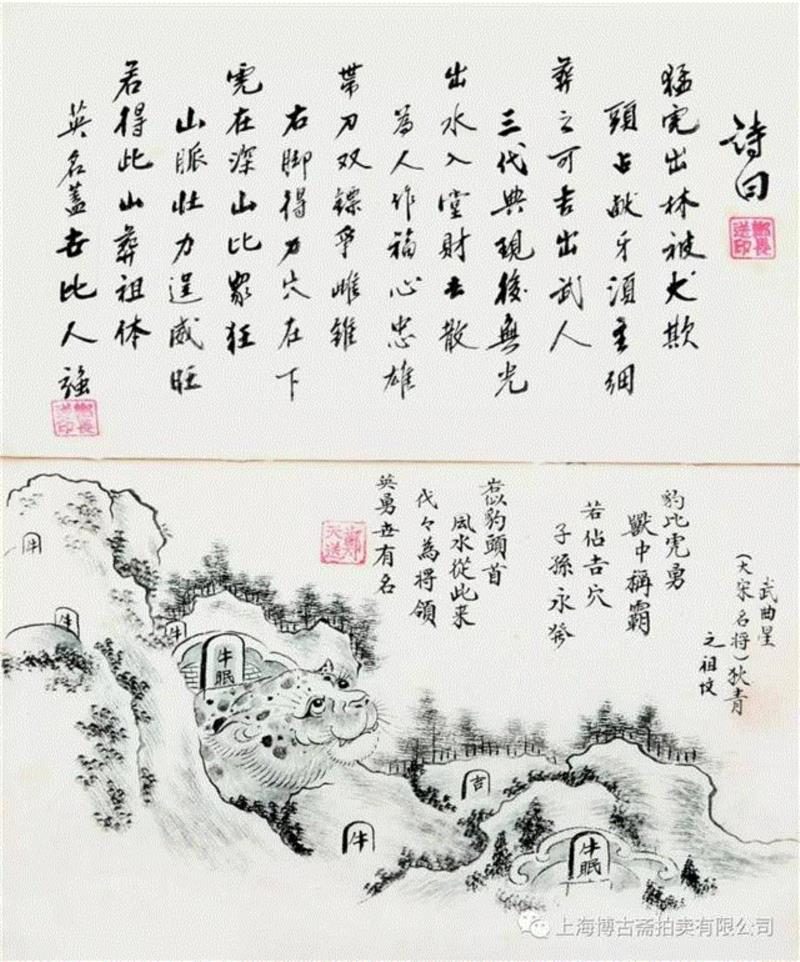 詩曰
猛虎出林被犬欺
頭 牙須
葬之可吉出武人
三代興現後無光
出水入堂財去散
為人作福心忠雄
帶刀双鏢爭雌雄
右脚得力穴在下
虎在深山比衆狂
山脈壮力逞威旺
若得此山葬祖体
英名蓋世比人強
武曲星
(大宋名将)狄青
之祖坟
豹比虎勇
獸中稱霸
若佔吉穴
子孫永發
豹頭首
風水從此来
代々為将領
英勇世有名
鄭天送
牛
牛
牛
牛眠
吉
牛
牛眠
上海博古斋拍卖有限公司